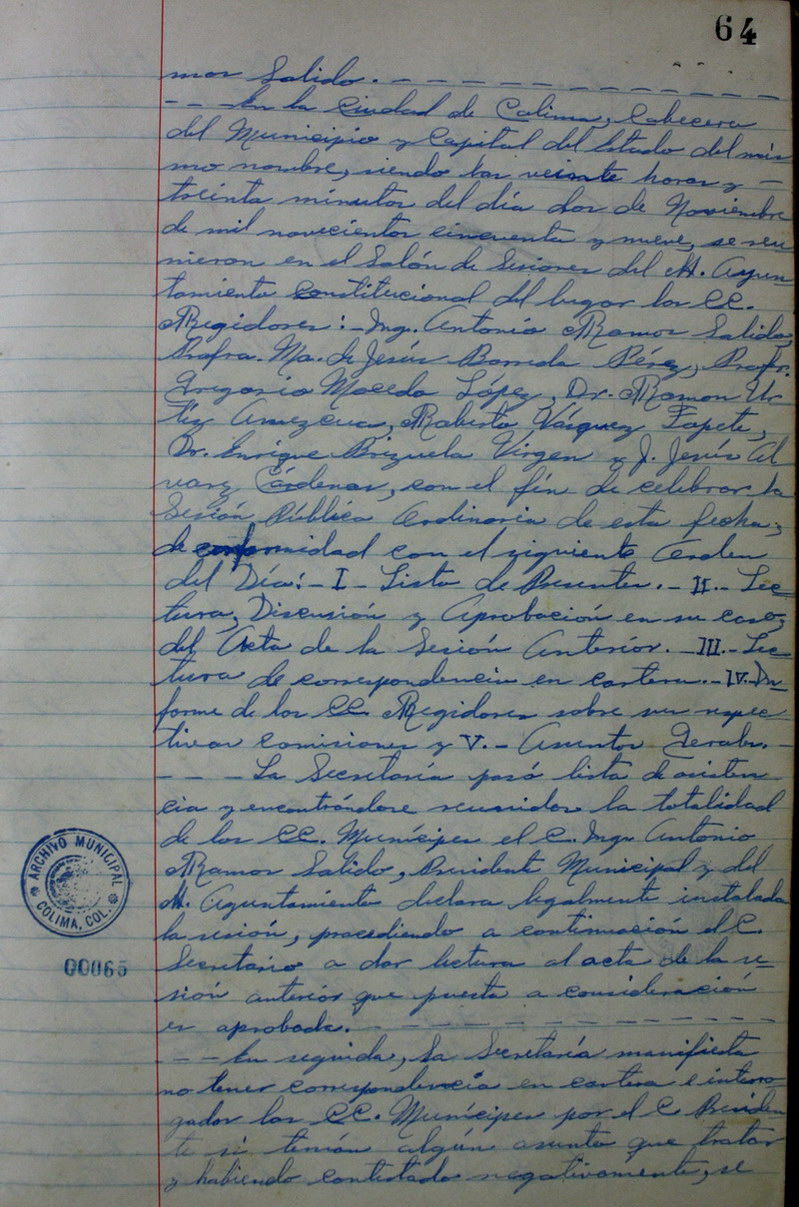 64
mos Salido. - - - - - - - - - - - - -
- - En la Ciudad de Colima, Cabecera
del Municipio y Capital del Estado del mis
mo nombre, siendo las veinte horas y -
treinta minutos del día dos de Noviembre
de mil novecientos cincuenta y nueve, se reu
nieron en el Salón de Sesiones del H. Ayun
tamiento Constitucional del lugar los CC.
Regidores:- Ing. Antonio Ramos Salido,
Profra. Ma. de Jesús Barreda Pérez, Profr.
Gregorio Macedo López, Dr. Ramon Ur
tiz Amezcua, Roberto Vásquez Tapete,
Dr. Enrique Brizuela Virgen y J. Jesús Al
varez Cárdenas, con el fín de celebrar la
Sesión Pública Ordinaria de esta fecha,
de conformidad con el siguiente Orden
del Día:- I- Lista de Presentes. - II. - Lec
tura, Discusión y Aprobación en su caso,
del Acta de la Sesión Anteriór. - III. - Lec
tura de correspondencia en cartera. - IV. - In
forme de los CC. Regidores sobre sus respec
tivas comisiones y V. - Asuntos Gerales. -
- - - La Secretaría pasó lista de asisten
cia y encontrándose reunidos la totalidad
de los CC. Munícipes el C. Ing. Antonio
Ramos Salido, Presidente Municipal y del
H. Ayuntamiento declara legalmente instalada
la sesión, procediendo a continuación el C.
Secretario a dar lectura al acta de la se-
sión anteriór que puesta a consideración
es aprobada. - - - - - - - - - - - - -
- - - En seguida, la Secretaría manifiesta
no tener correspondencia en cartera e interro
gados los CC. Munícipes por el C. Presiden
te si tenían algún asunto que tratar
y habiendo contestado negativamente, se
ARCHIVO MUNICIPAL
COLIMA, COL.
00065